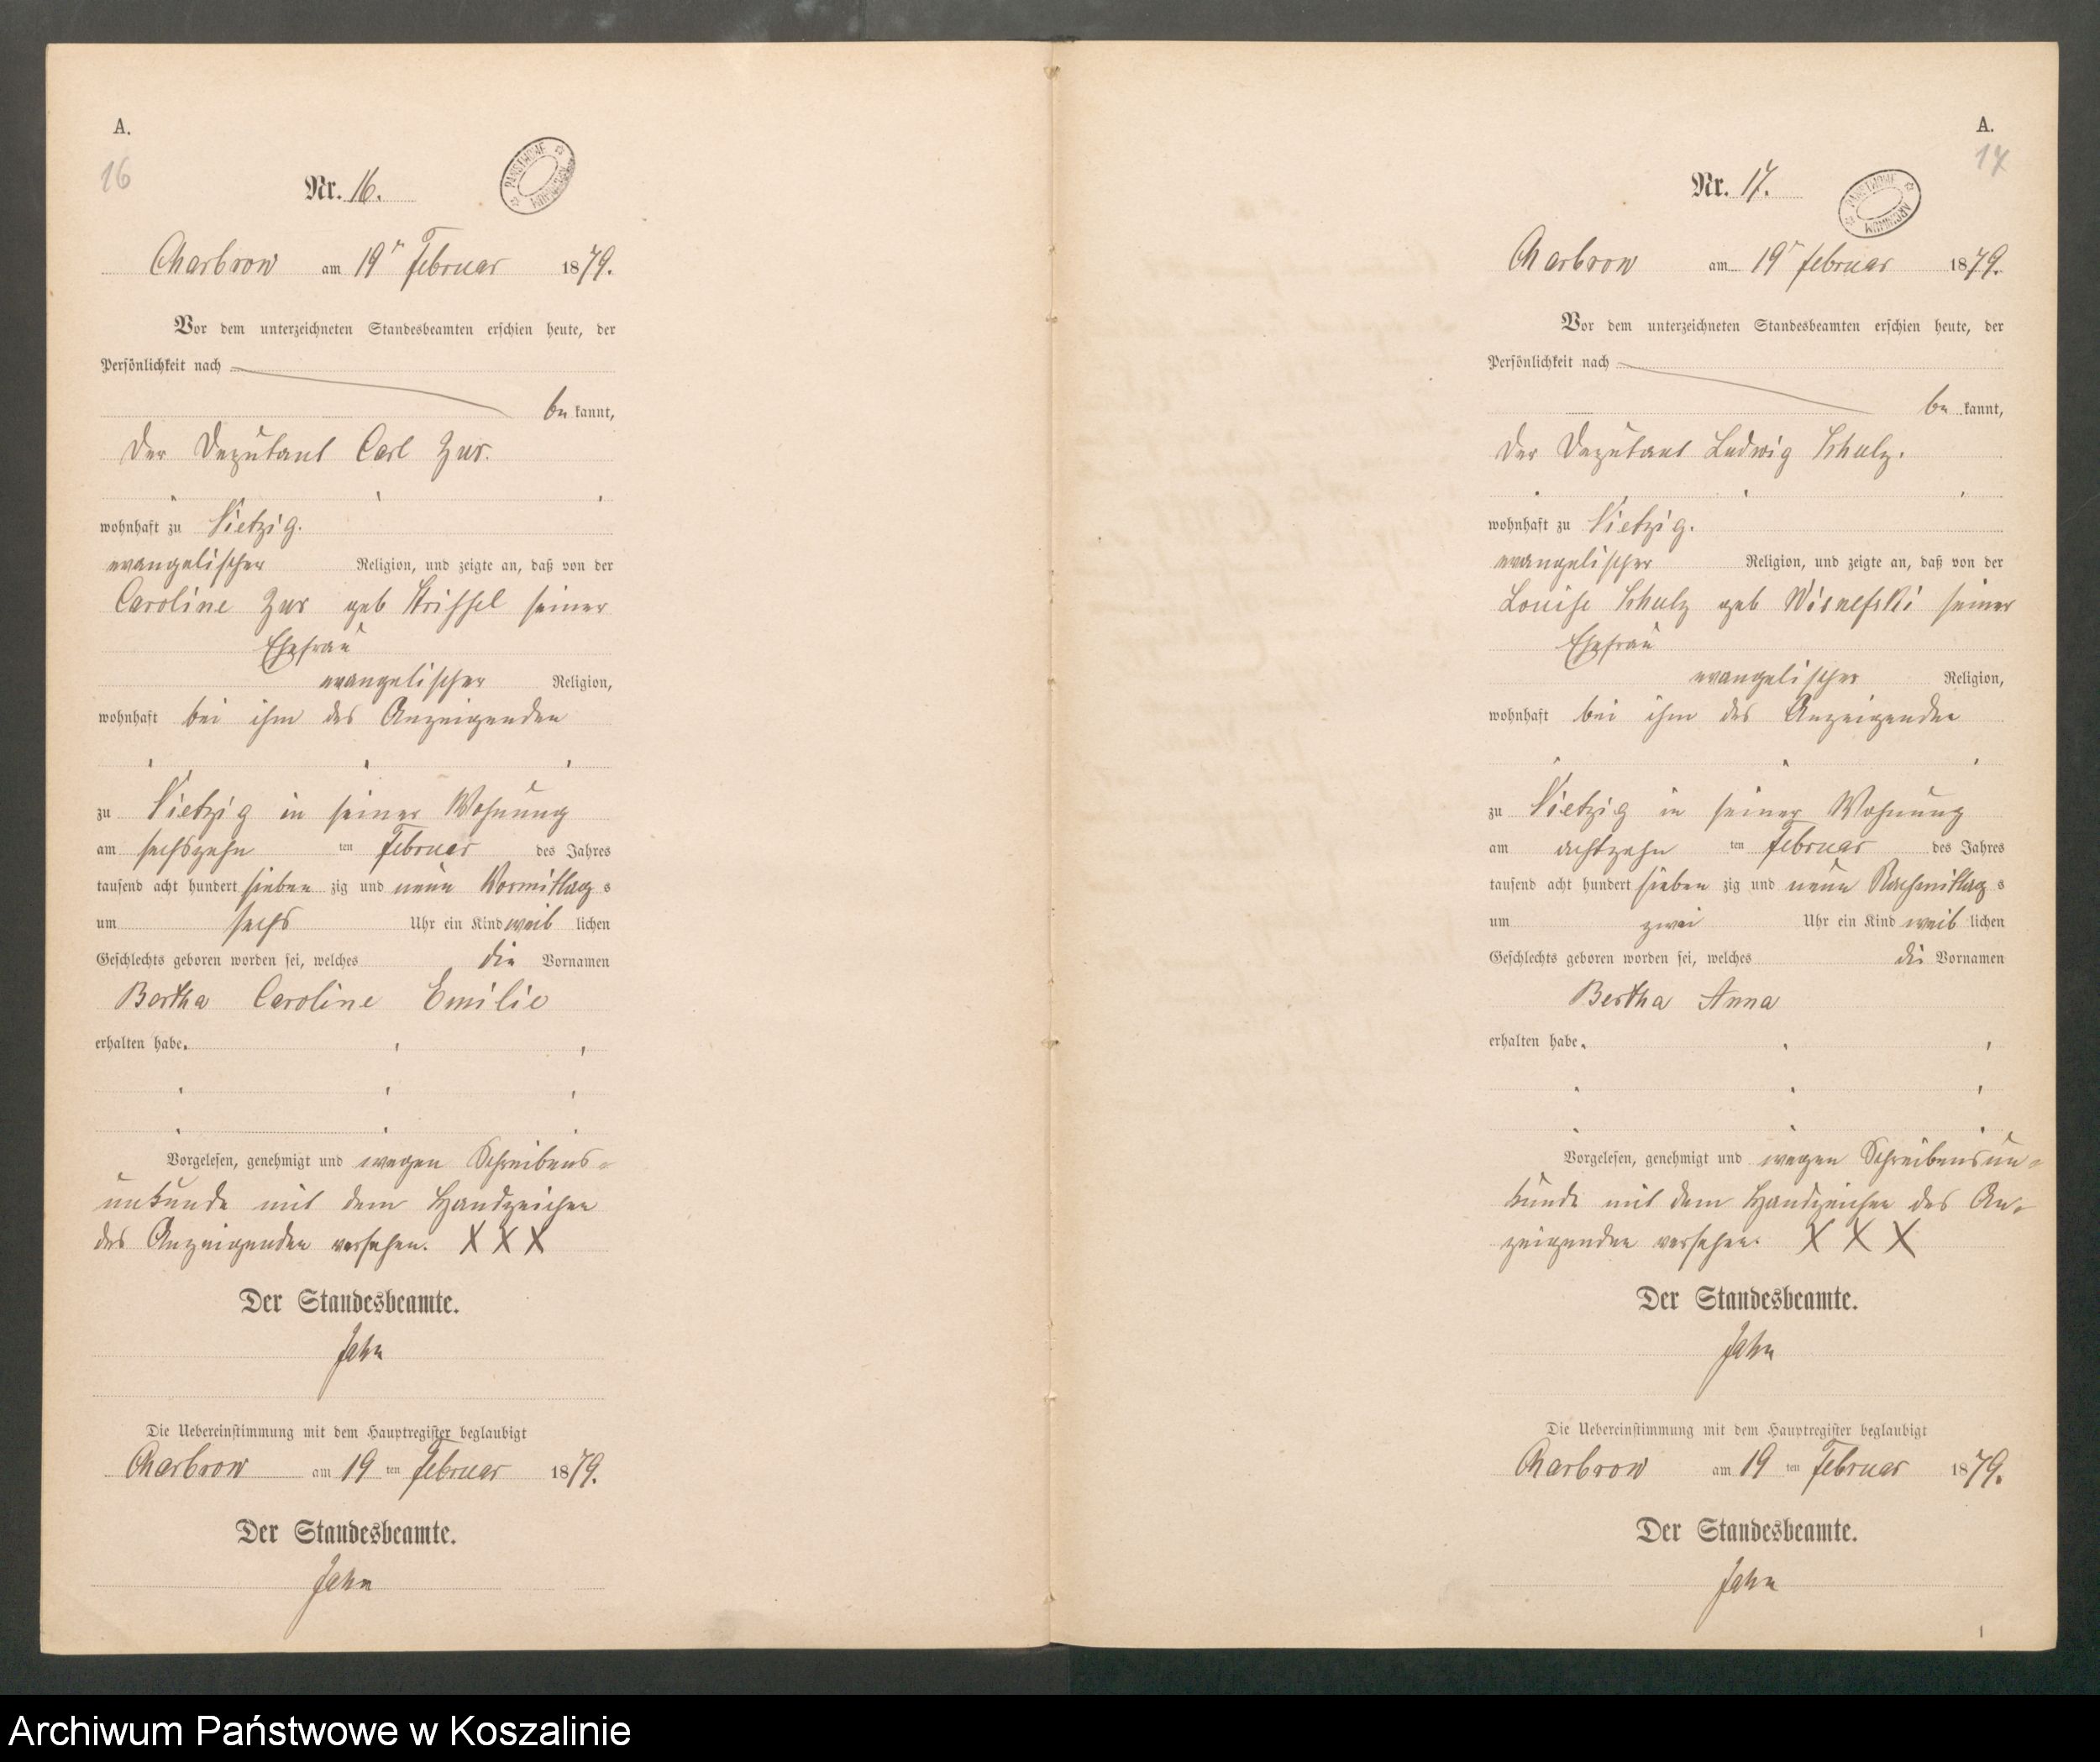 A.
16
Nr. 16.
PAŃSTWOWE ARCHIWUM
Charbrow am 19ⁿ Februar 1879.
Vor dem unterzeichneten Standesbeamten erschien heute, der
Persönlichkeit nach
be kannt,
der Deputant Carl Zur.
wohnhaft zu Vietzig.
evangelischer Religion, und zeigte an, daß von der
Caroline Zur geb seiner
Ehefrau
evangelischer Religion,
wohnhaft bei ihm des Anzeigenden
zu Vietzig in seiner Wohnung
am sechszehn ten Februar des Jahres
tausend acht hundert sieben zig und neun Vormittag s
um sechs Uhr ein Kind weib lichen
Geschlechts geboren worden sei, welches die Vornamen
Bertha Caroline Emilie
erhalten habe.
Vorgelesen, genehmigt und wegen Schreibens=
unkunde mit dem Handzeichen
des Anzeigenden versehen. X X X
Der Standesbeamte.
Jahn
Die Uebereinstimmung mit dem Hauptregister beglaubigt
Charbrow am 19 ten Februar 1879.
Der Standesbeamte.
Jahn
A.
17
Nr. 17.
PAŃSTWOWE ARCHIWUM
Charbrow am 19ⁿ Februar 1879.
Vor dem unterzeichneten Standesbeamten erschien heute, der
Persönlichkeit nach
be kannt,
der Deputant Ludwig Schulz.
wohnhaft zu Vietzig.
evangelischer Religion, und zeigte an, daß von der
Louise Schulz geb Wisnefski seiner
Ehefrau
evangelischer Religion,
wohnhaft bei ihm des Anzeigenden
zu Vietzig in seiner Wohnung
am achtzehn ten Februar des Jahres
tausend acht hundert sieben zig und neun Nachmittag s
um zwei Uhr ein Kind weib lichen
Geschlechts geboren worden sei, welches die Vornamen
Bertha Anna
erhalten habe.
Vorgelesen, genehmigt und wegen Schreibensun=
kunde mit dem Handzeichen des An=
zeigenden versehen. X X X
Der Standesbeamte.
Jahn
Die Uebereinstimmung mit dem Hauptregister beglaubigt
Charbrow am 19 ten Februar 1879.
Der Standesbeamte.
Jahn
Archiwum Państwowe w Koszalinie